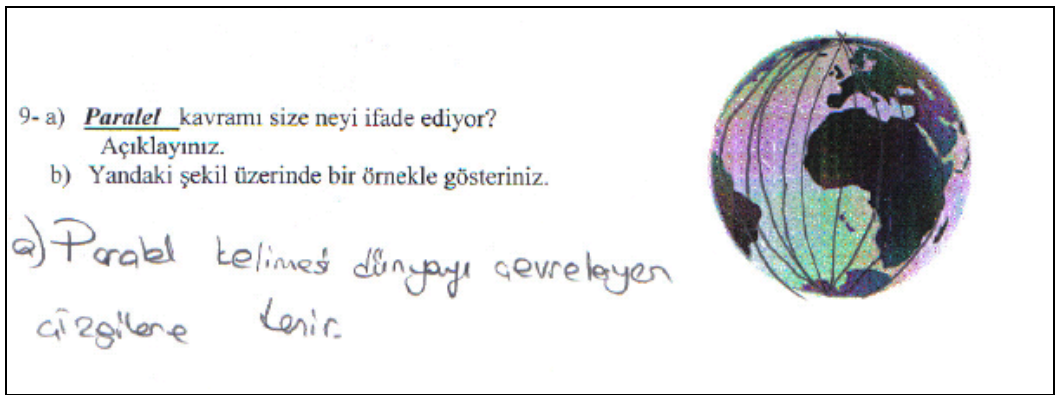 9- a) Paralel kavramı size neyi ifade ediyor?
Açıklayınız.
b) Yandaki şekil üzerinde bir örnekle gösteriniz.
a) Paralel kelimesi dünyayı çevreleyen
çizgilere denir.